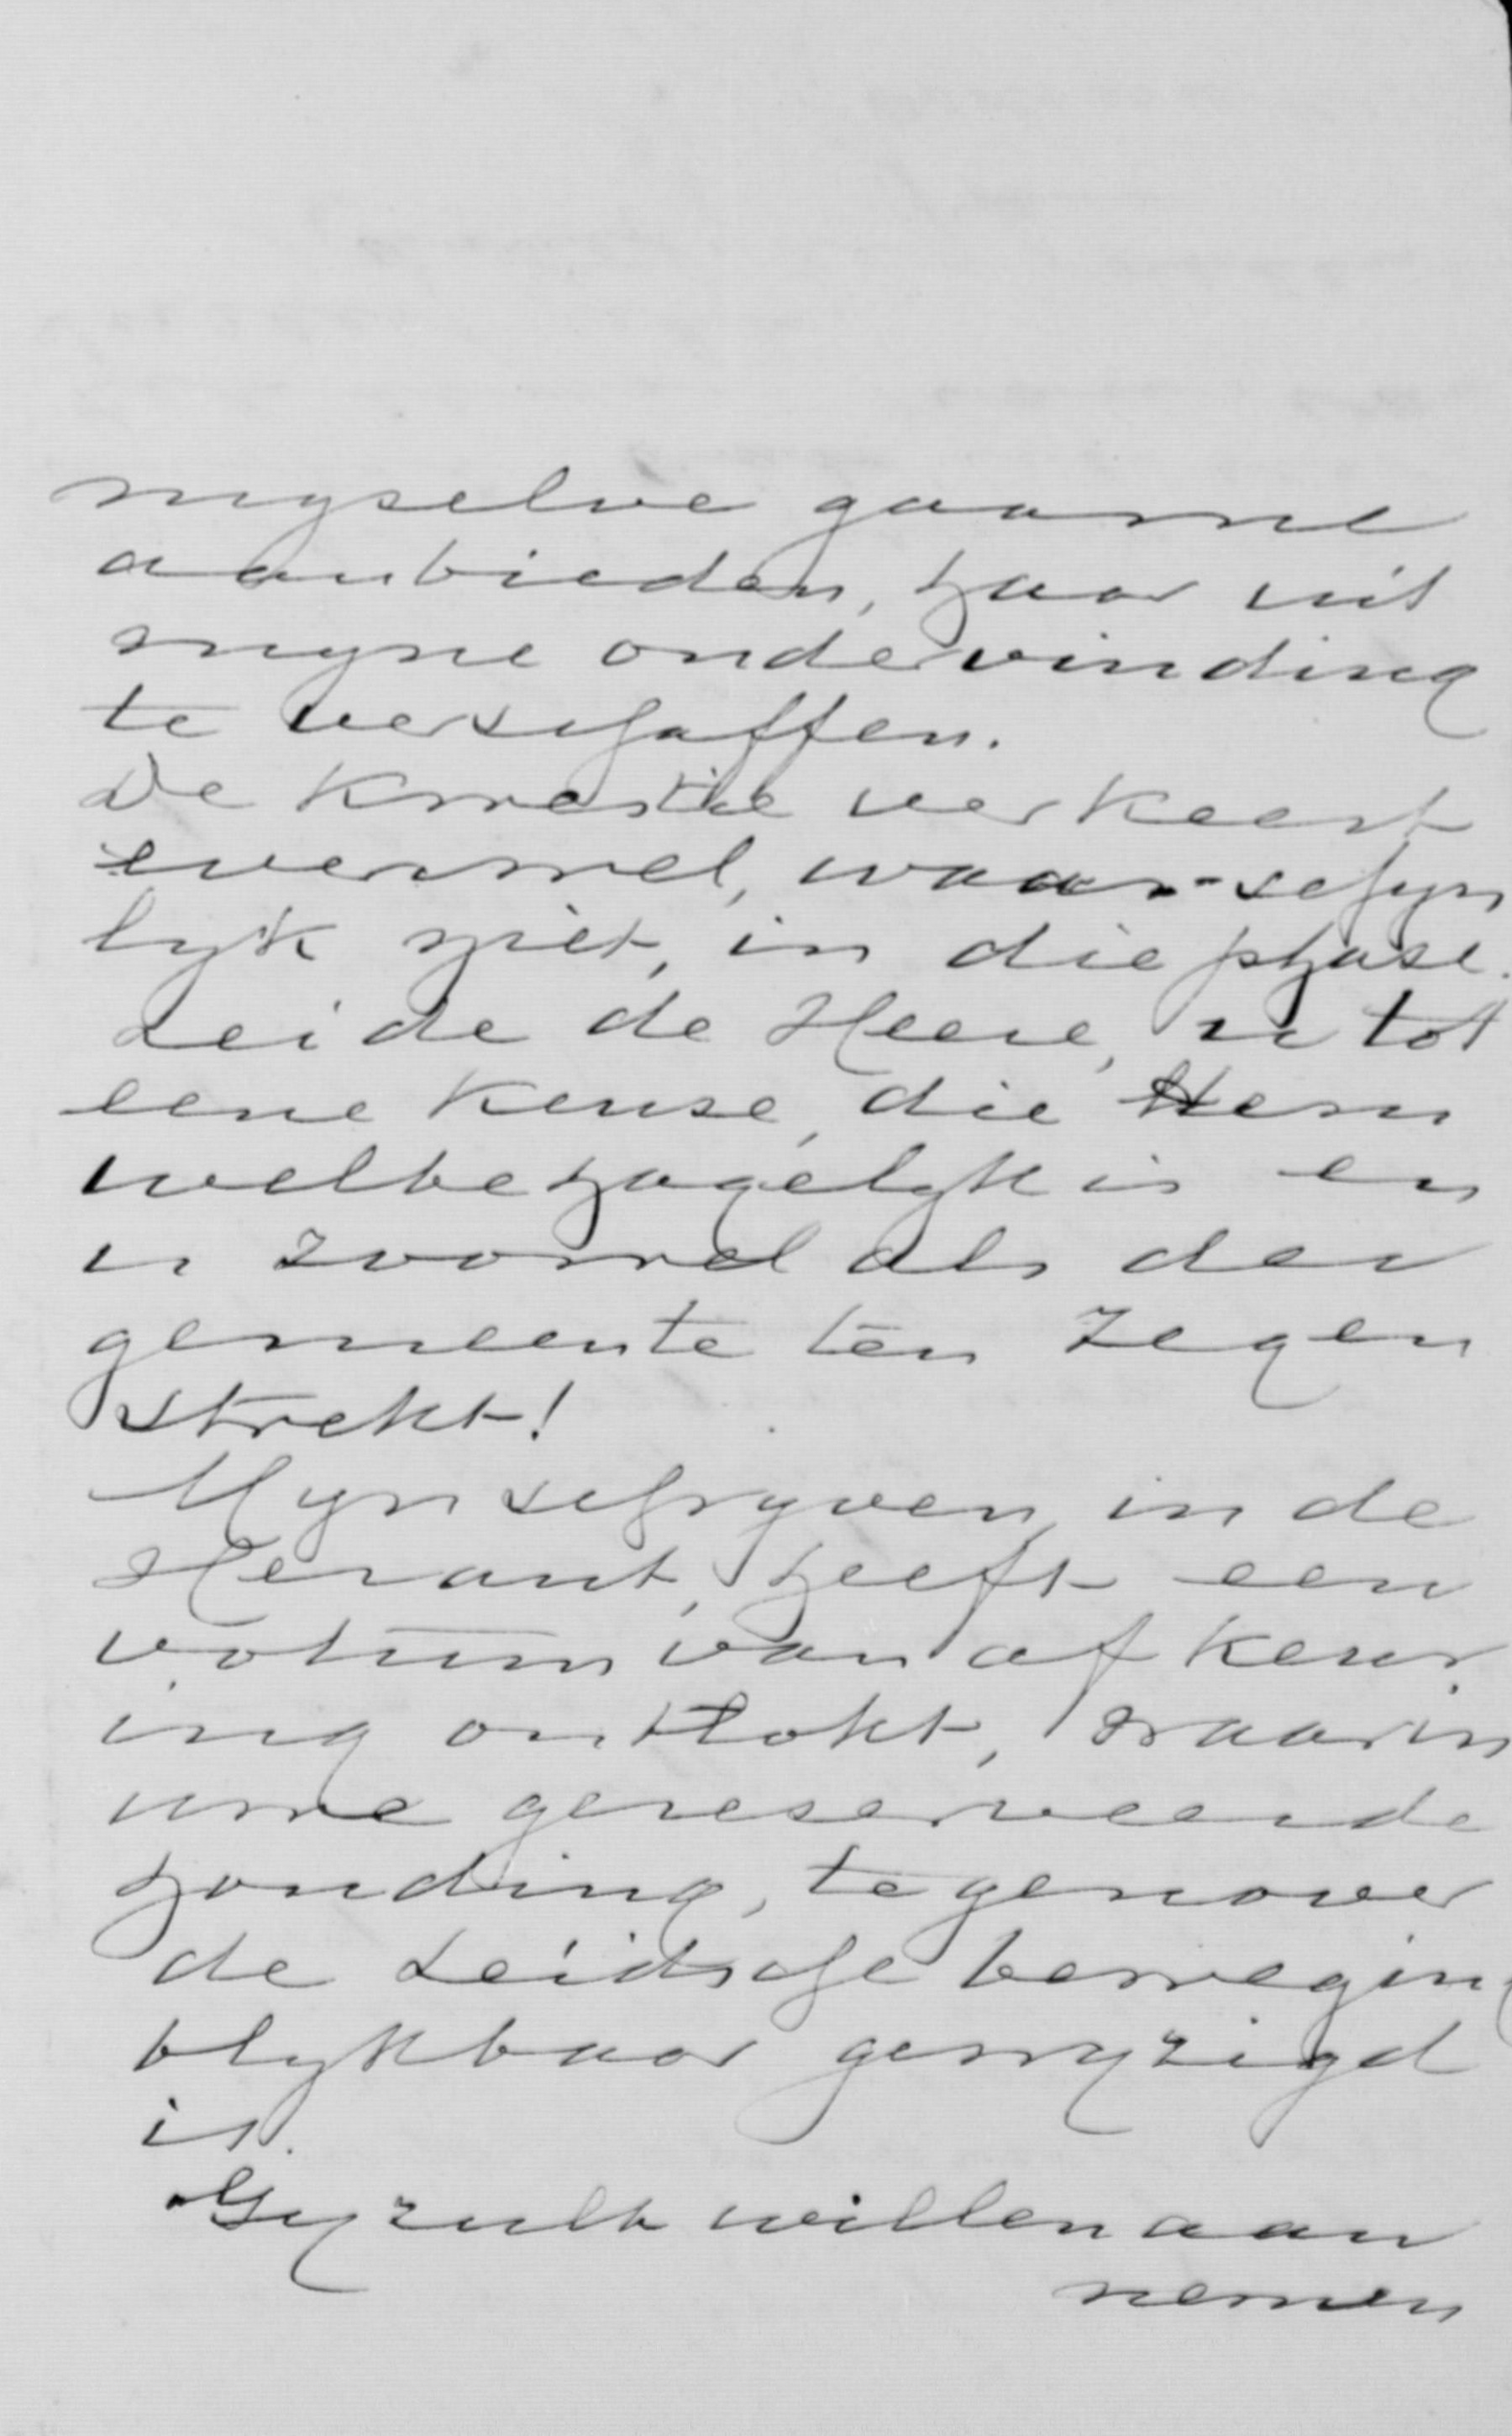 myselve gaarne
aanbieden, haar uit
myne ondervinding
te verschaffen.
De Kwestie verkeert
evenwel, waar-schyn
lyk niet, in die phase.
Leide de Heere, u tot
eene keuse, die Hem
welbehagelyk is en
u zoowel als der
gemeente ten zegen
strekt!
Myn schryven, in de
Heraut, heeft een
votum van afkeur
ing ontlokt, waarin
uwe gereserveerde
houding, tegenover
de Leidsche beweging
blykbaar gewyzigd
is.
Gy zult willen aan
nemen